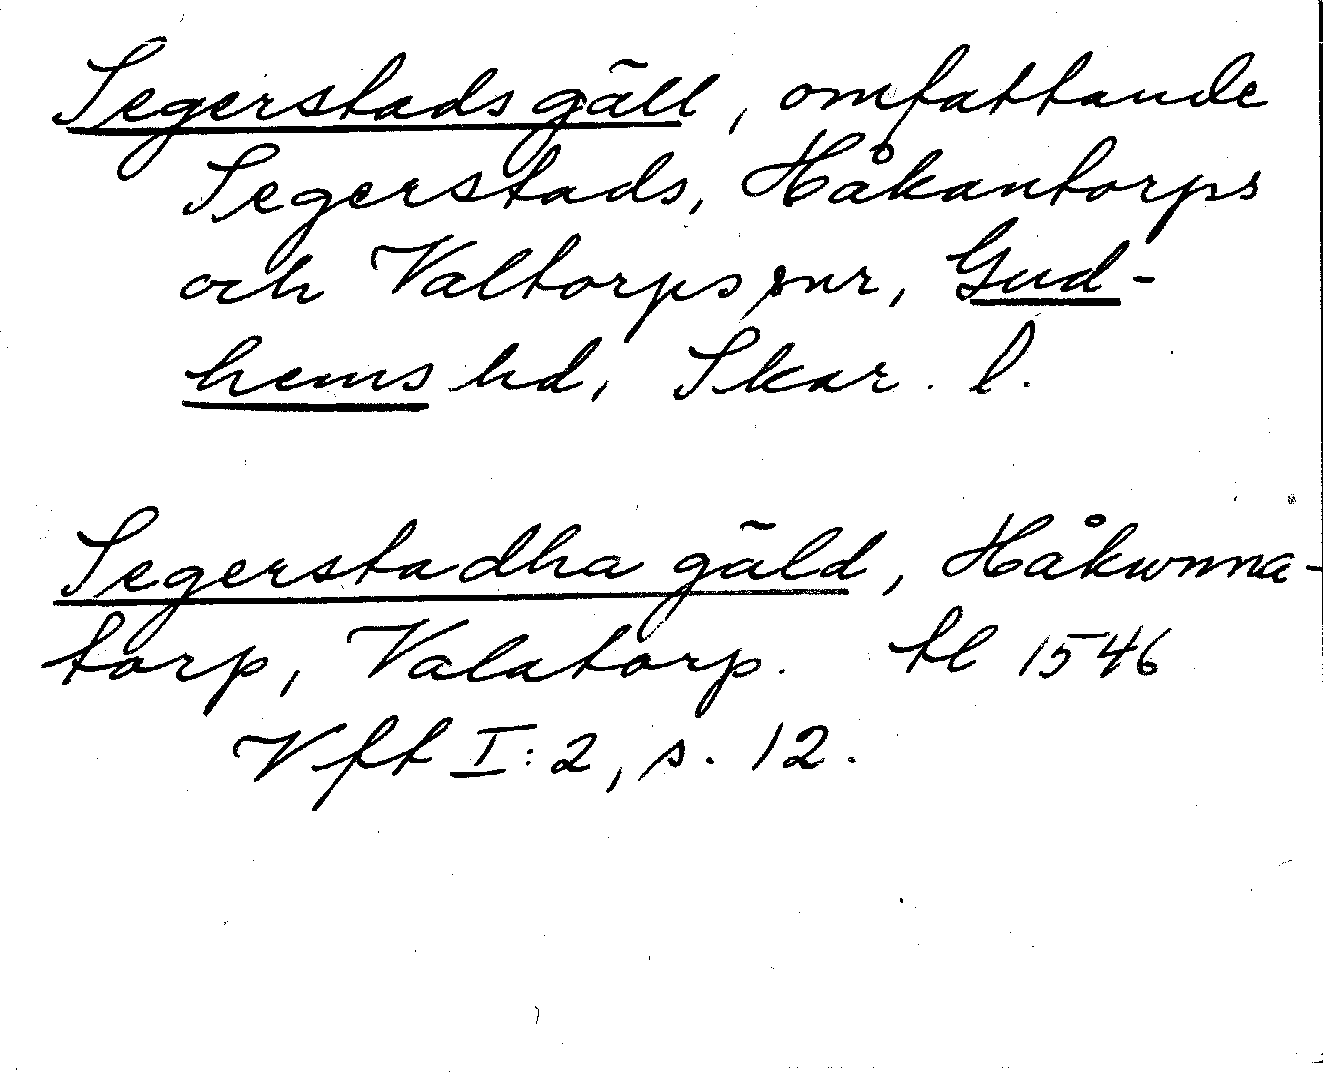 Segerstads gäll, omfattande
Segerstads, Håkantorps
och Valtorps snr, Gud-
hems hd, Skar. l.
Segerstadha gäld, Håkwnna-
torp, Valatorp. tl 1546
Vft I:2, s. 12.